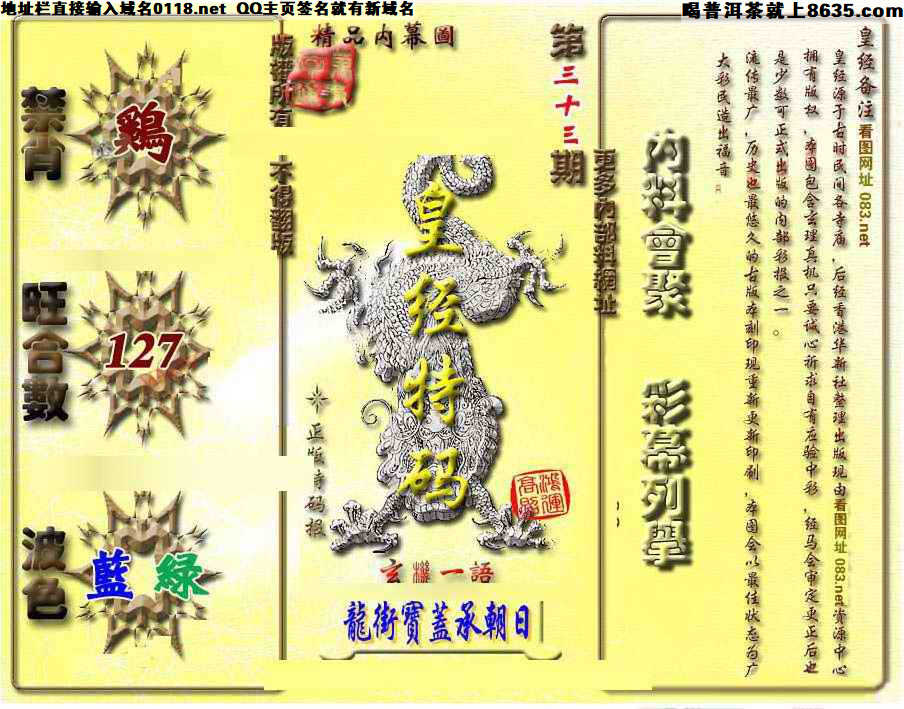 地址栏直接输入域名0118.net QQ主页签名就有新域名
喝普洱茶就上8635.com
精品内幕圖
第三十三期
版權所有
不得翻版
禁肖
鷄
旺合數
127
波色
藍 綠
皇经特码
正版特码报
鴻運高照
玄機一語
龍街寶蓋承朝日
更多內部料網址
内料會聚
彩幕列舉
皇经备注 看图网址 083.net
皇经源于古时民间各寺庙，后经香港华新社整理出版现由看图网址 083.net资源中心
拥有版权，本图包含玄理真机只要诚心祈求自有应验中彩，经马会审定更正后也
是少数可正式出版的内部彩报之一。
流传最广，历史也最悠久的古版本刻印现重新更新印刷，本图会以最佳状态为广
大彩民造出福音